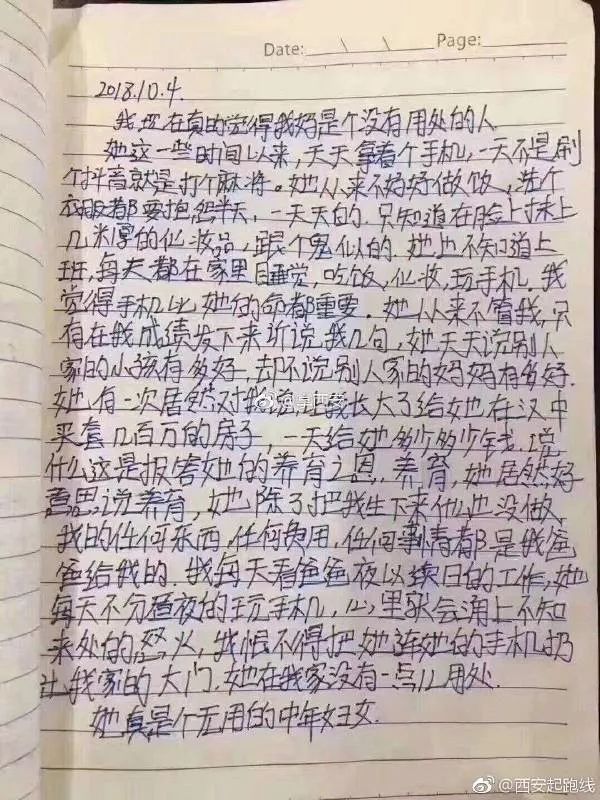 Date: \ \ Page:
2018.10.4.
我现在真的觉得我妈是个没有用处的人
她这一些时间以来，天天拿着个手机，一天不是刷
个抖音就是打个麻将。她从来不好好做饭，洗个
衣服都要抱怨半天，一天天的.只知道在脸上抹上
几米厚的化妆品，跟个鬼似的.她也不知道上
班，每天都在家里睡觉，吃饭，化妆，玩手机.我
觉得手机比她的命都重要.她从来不管我，只
有在我成绩发下来訴说我几句，她天天说别人
家的小孩有多好.却不说别人家的妈妈有多好.
她有一次居然对我说，让我长大了给她在汉中
买套几百万的房子，一天给她多少多少钱.说
什么这是报答她的养育之恩.养育，她居然好
意思说养育，她除了把我生下来什么也没做.
我的任何东西，任何费用，任何事情都是我爸
爸给我的.我每天看爸爸夜以续日的工作，她
每天不分昼夜的玩手机，心里就会涌上不知
来处的怒火，我恨不得把她连她的手机扔
出我家的大门.她在我家没有一点儿用处.
她真是个无用的中年妇女.
@西安起跑线